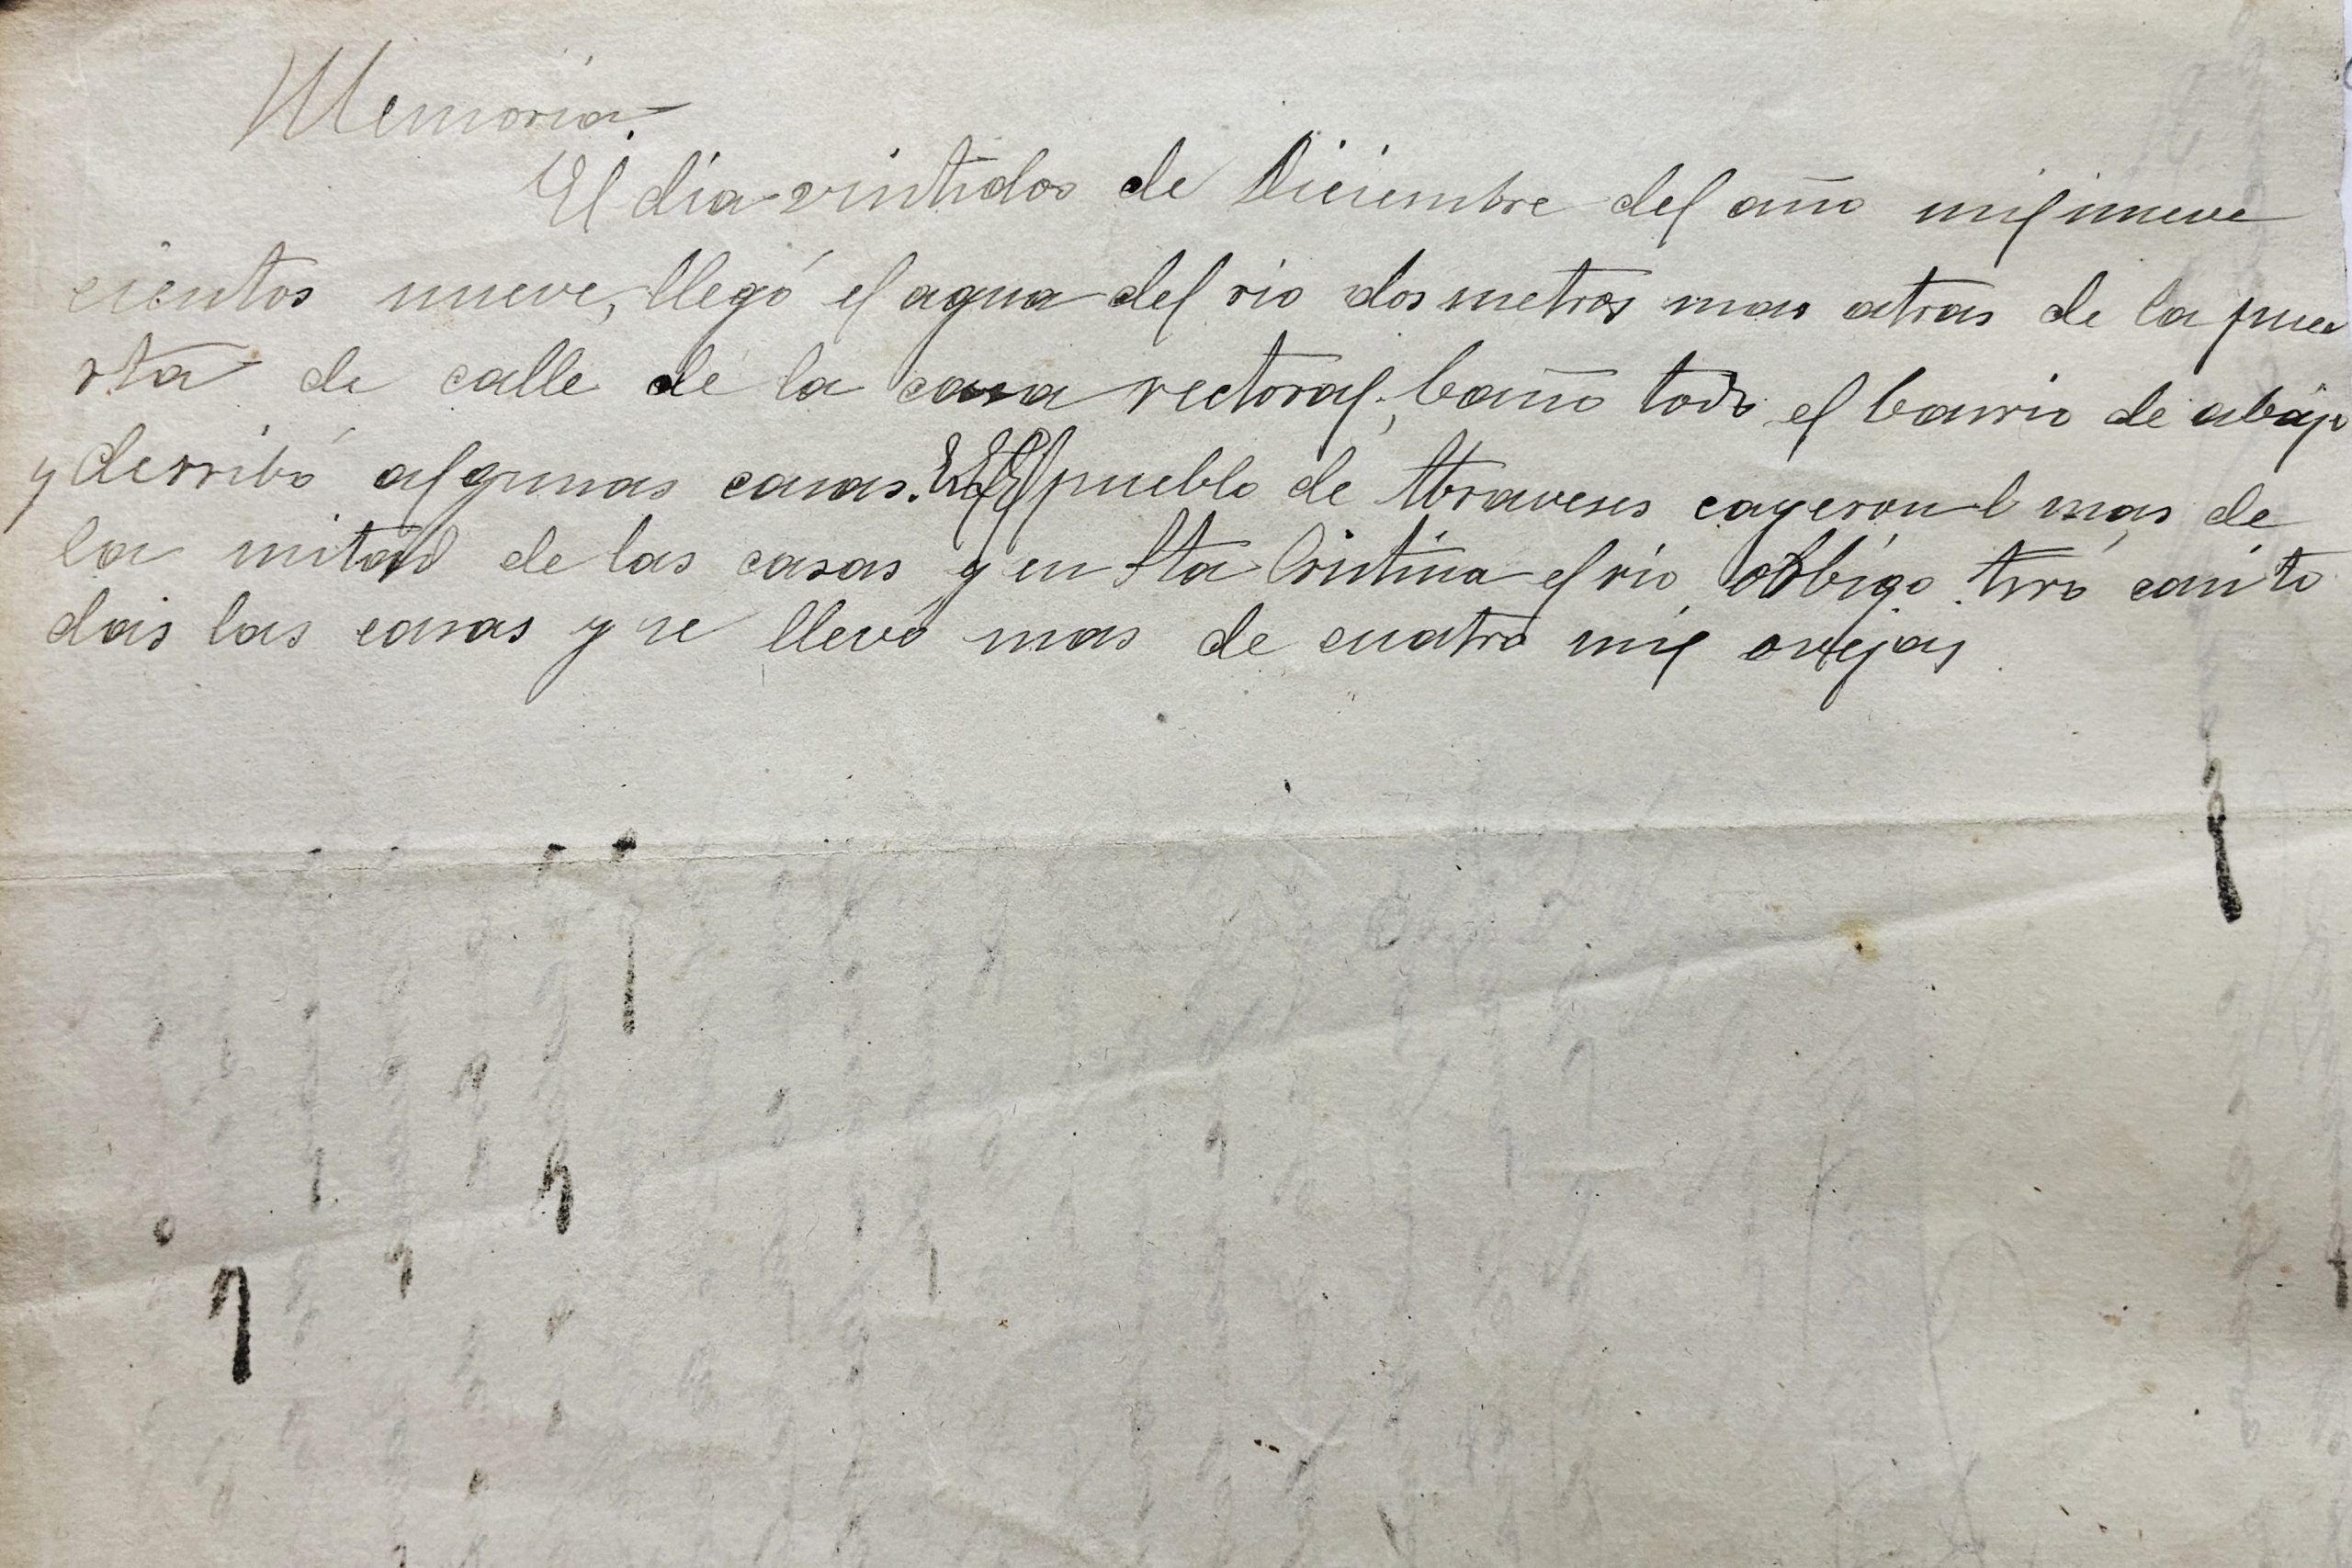 Memoria.
El día vintidos de Diciembre del año mil nueve
cientos nueve, llegó el agua del rio dos metros mas atras de la pue
rta de calle de la casa rectoral; baño todo el barrio de abajo
y derribó algunas casas. El pueblo de Abraveses cayeron mas de
la mitad de las casas y en Sta Cristina el rio Orbigo tiró casi to
das las casas y se llevó mas de cuatro mil ovejas